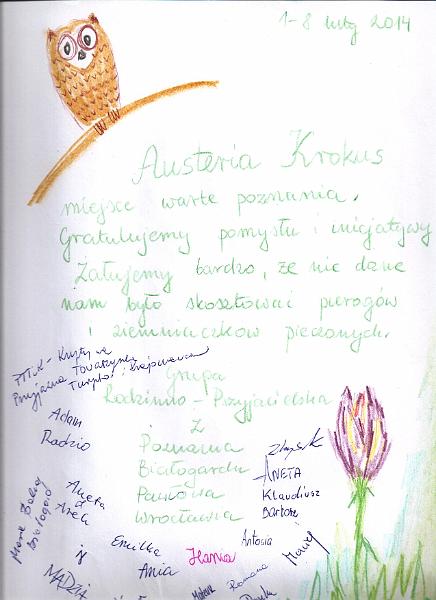 1-8 luty 2014
Austeria Krokus
miejsce warte poznania.
Gratulujemy pomysłu i inicjatywy
Żałujemy bardzo, że nie dane
nam było skosztować pierogów
i ziemniaczków pieczonych.
Grupa
Rodzinno-Przyjacielska
z
Poznania
Białogardu
Pawłowa
Wrocławia
PTTK - Krystyna
Adam
Radzio
Zbyszek
ANETA
Klaudiusz
Bartosz
Aneta
Arek
Antonia
Maciej
Emilka
Ania
Hania
MADZIA
Romana